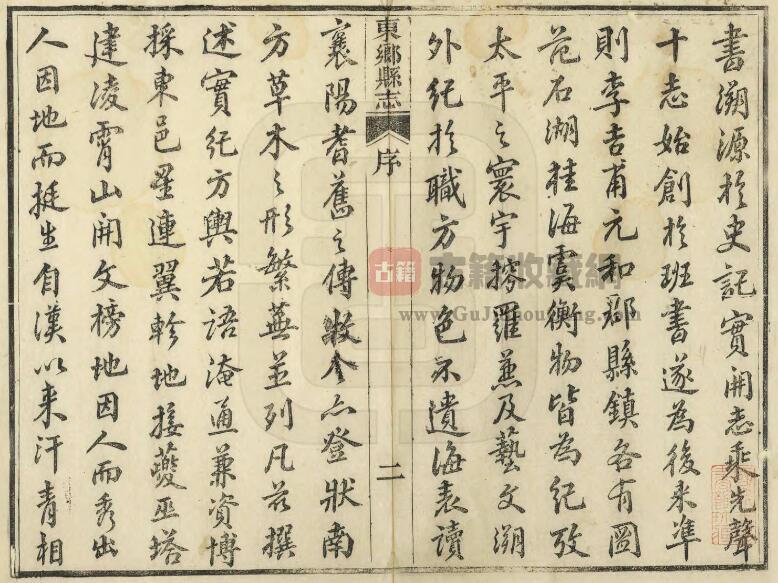 書溯源於史記實開志乘先聲
十志始創於班書遂為後来準
則李吉甫元和郡縣鎮各有圖
范石湖桂海虞衡物皆為紀攷
太平之寰宇搜羅兼及藝文溯
外紀於職方物色不遺海表讀
東鄉縣志
序
二
襄陽耆舊之傳亦登狀南
方草木之形繁蕪並列凡茲撰
述實紀方輿若語淹通兼資博
採東邑星連翼軫地接夔巫塔
建凌霄山開文榜地因人而秀出
人因地而挺生自漢以来汗青相
古籍
古籍收藏網
www.GuJiShouCang.com